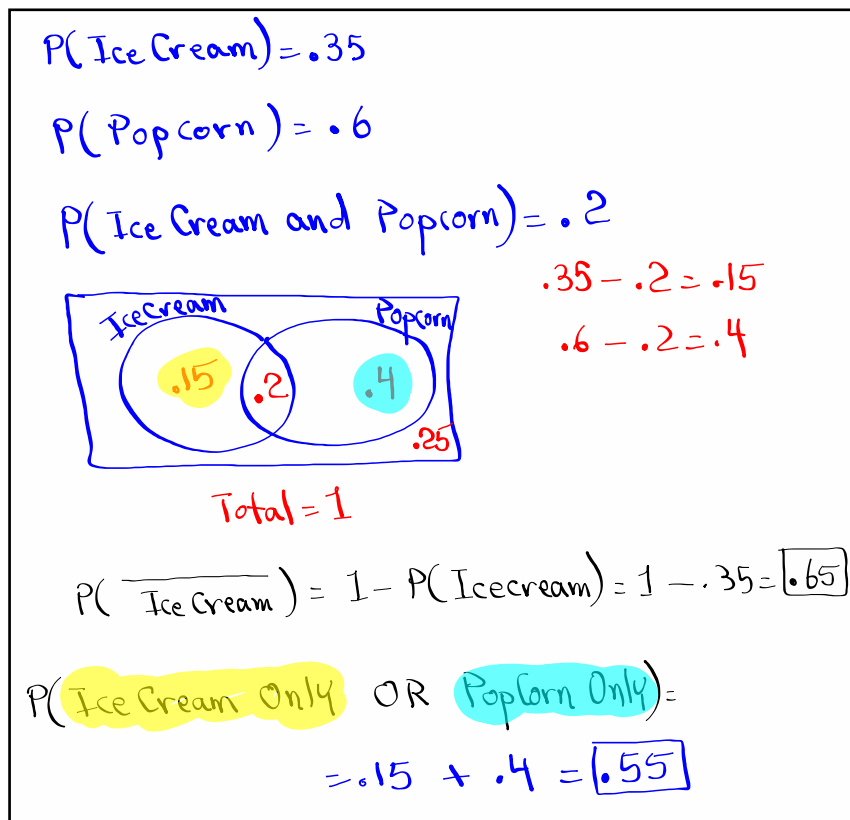 P(Ice Cream) = .35
P(Popcorn) = .6
P(Ice Cream and Popcorn) = .2
.35 - .2 = .15
.6 - .2 = .4
IceCream Popcorn
.15 .2 .4
.25
Total = 1
P(\overline{Ice Cream}) = 1 - P(Icecream) = 1 - .35 = .65
P(Ice Cream Only OR PopCorn Only) =
= .15 + .4 = .55